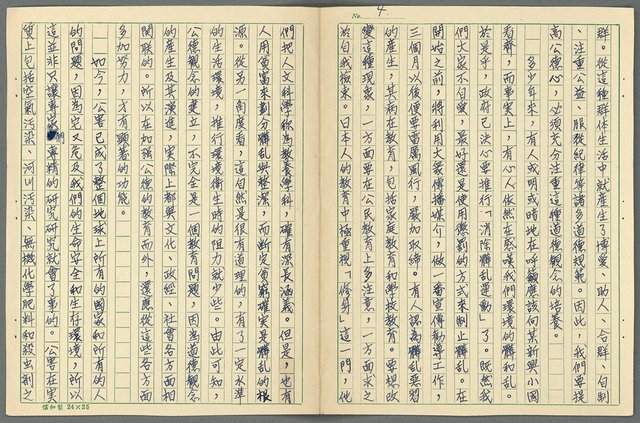 No. 4
群。從這種群体生活中就產生了博愛、助人、合群、自制
、注重公益、服從紀律等諸多道德規範。因此，我們要提
高公德心，必須充分注重這種道德觀念的培養。
多少年來，有人或明或暗地在呼籲應該向某新興小國
看齊，而事实上，有心人依然在感嘆我們環境的髒和乱。
於是乎，政府已決心要推行「消除髒乱運動」了。既然我
們大家不自愛，最好還是使用懲罰的方式來制止髒乱。在
開始之前，將利用大眾傳播媒介，做一番宣傳勸導工作，
三個月以後便要雷厲風行，嚴加取締。有人認為髒乱惡習
的產生，其病在教育，包括家庭教育和學校教育。要想改
變這種現象，一方面要在公民教育上多注意，一方面求之
於自我檢束。日本人的教育中極重視「修身」這一門，他
們把人文科學称為教養學科，確有深長涵義。但是，也有
人用貧富來劃分髒乱與整潔，而斷定貧窮確实是髒乱的根
源。從另一角度看，這自然是很有道理的，有了一定水準
的生活環境，推行環境衛生時的阻力就少些。由此可知，
公德觀念的建立，不完全是一個教育問題，因為道德觀念
的產生及其演進，实際上都與文化、政經、社會各方面相
関联的。所以在加強公德的教育而外，還應從這些各方面
多加努力，才有顯著的功能。
如今，公害已成了整個地球上所有的國家和所有的人
的問題，因為它又危及我們的生命安全和生存環境，所以
這並非只讓專家們專精的研究研究就會了事的。公害在实
質上包括空氣污染、河川污染、無機化學肥料和殺虫剂之
信和製 24×25